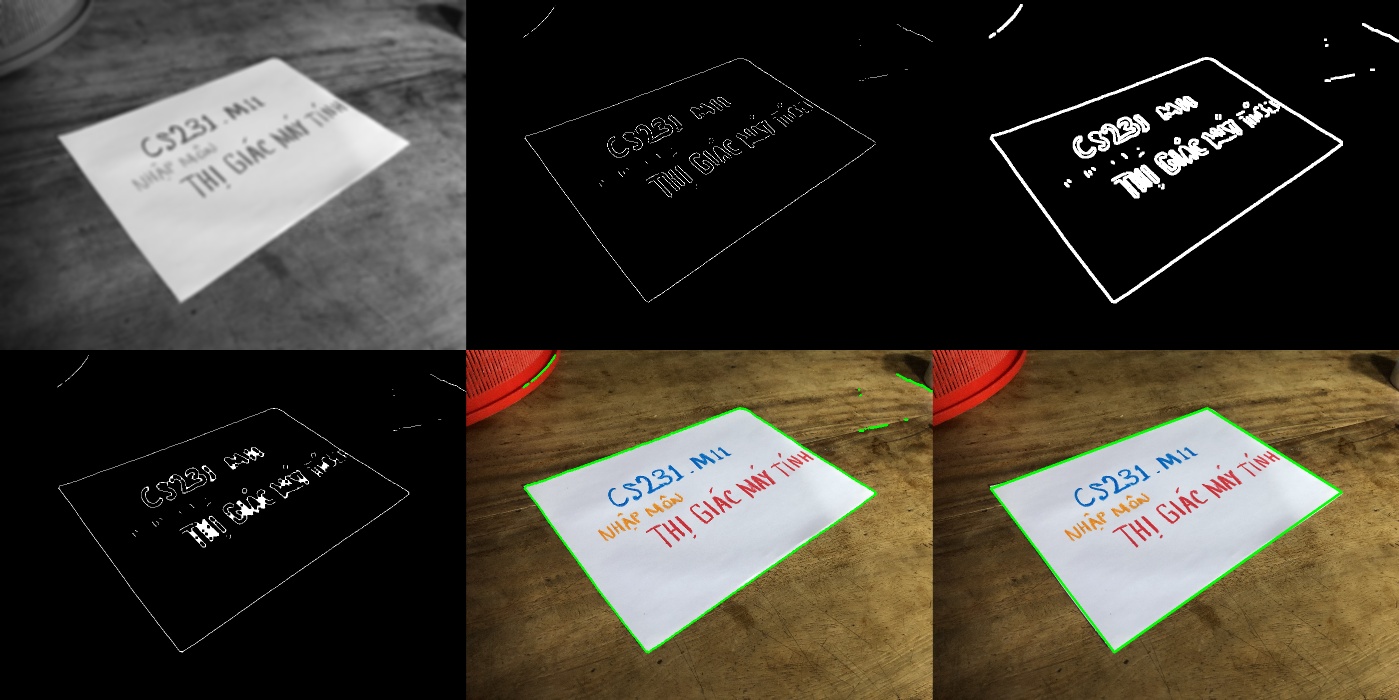 CS231.M11
NHẬP MÔN
THỊ GIÁC MÁY TÍNH
CS231 M11
THỊ GIÁC MÁY TÍNH
CS231 M11
THỊ GIÁC MÁY TÍNH
CS231 M11
THỊ GIÁC MÁY TÍNH
CS231.M11
NHẬP MÔN
THỊ GIÁC MÁY TÍNH
CS231.M11
NHẬP MÔN
THỊ GIÁC MÁY TÍNH